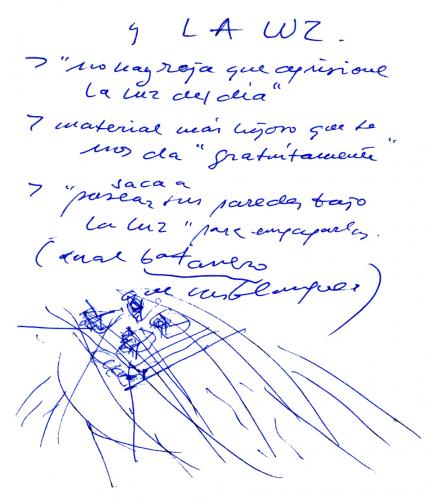 y LA LUZ.
> "no hay reja que aprisione
la luz del día"
> material más lujoso que se
nos da "gratuitamente"
saca a
> "pasear sus paredes bajo
la luz" para empaparlas.
(cual batanero